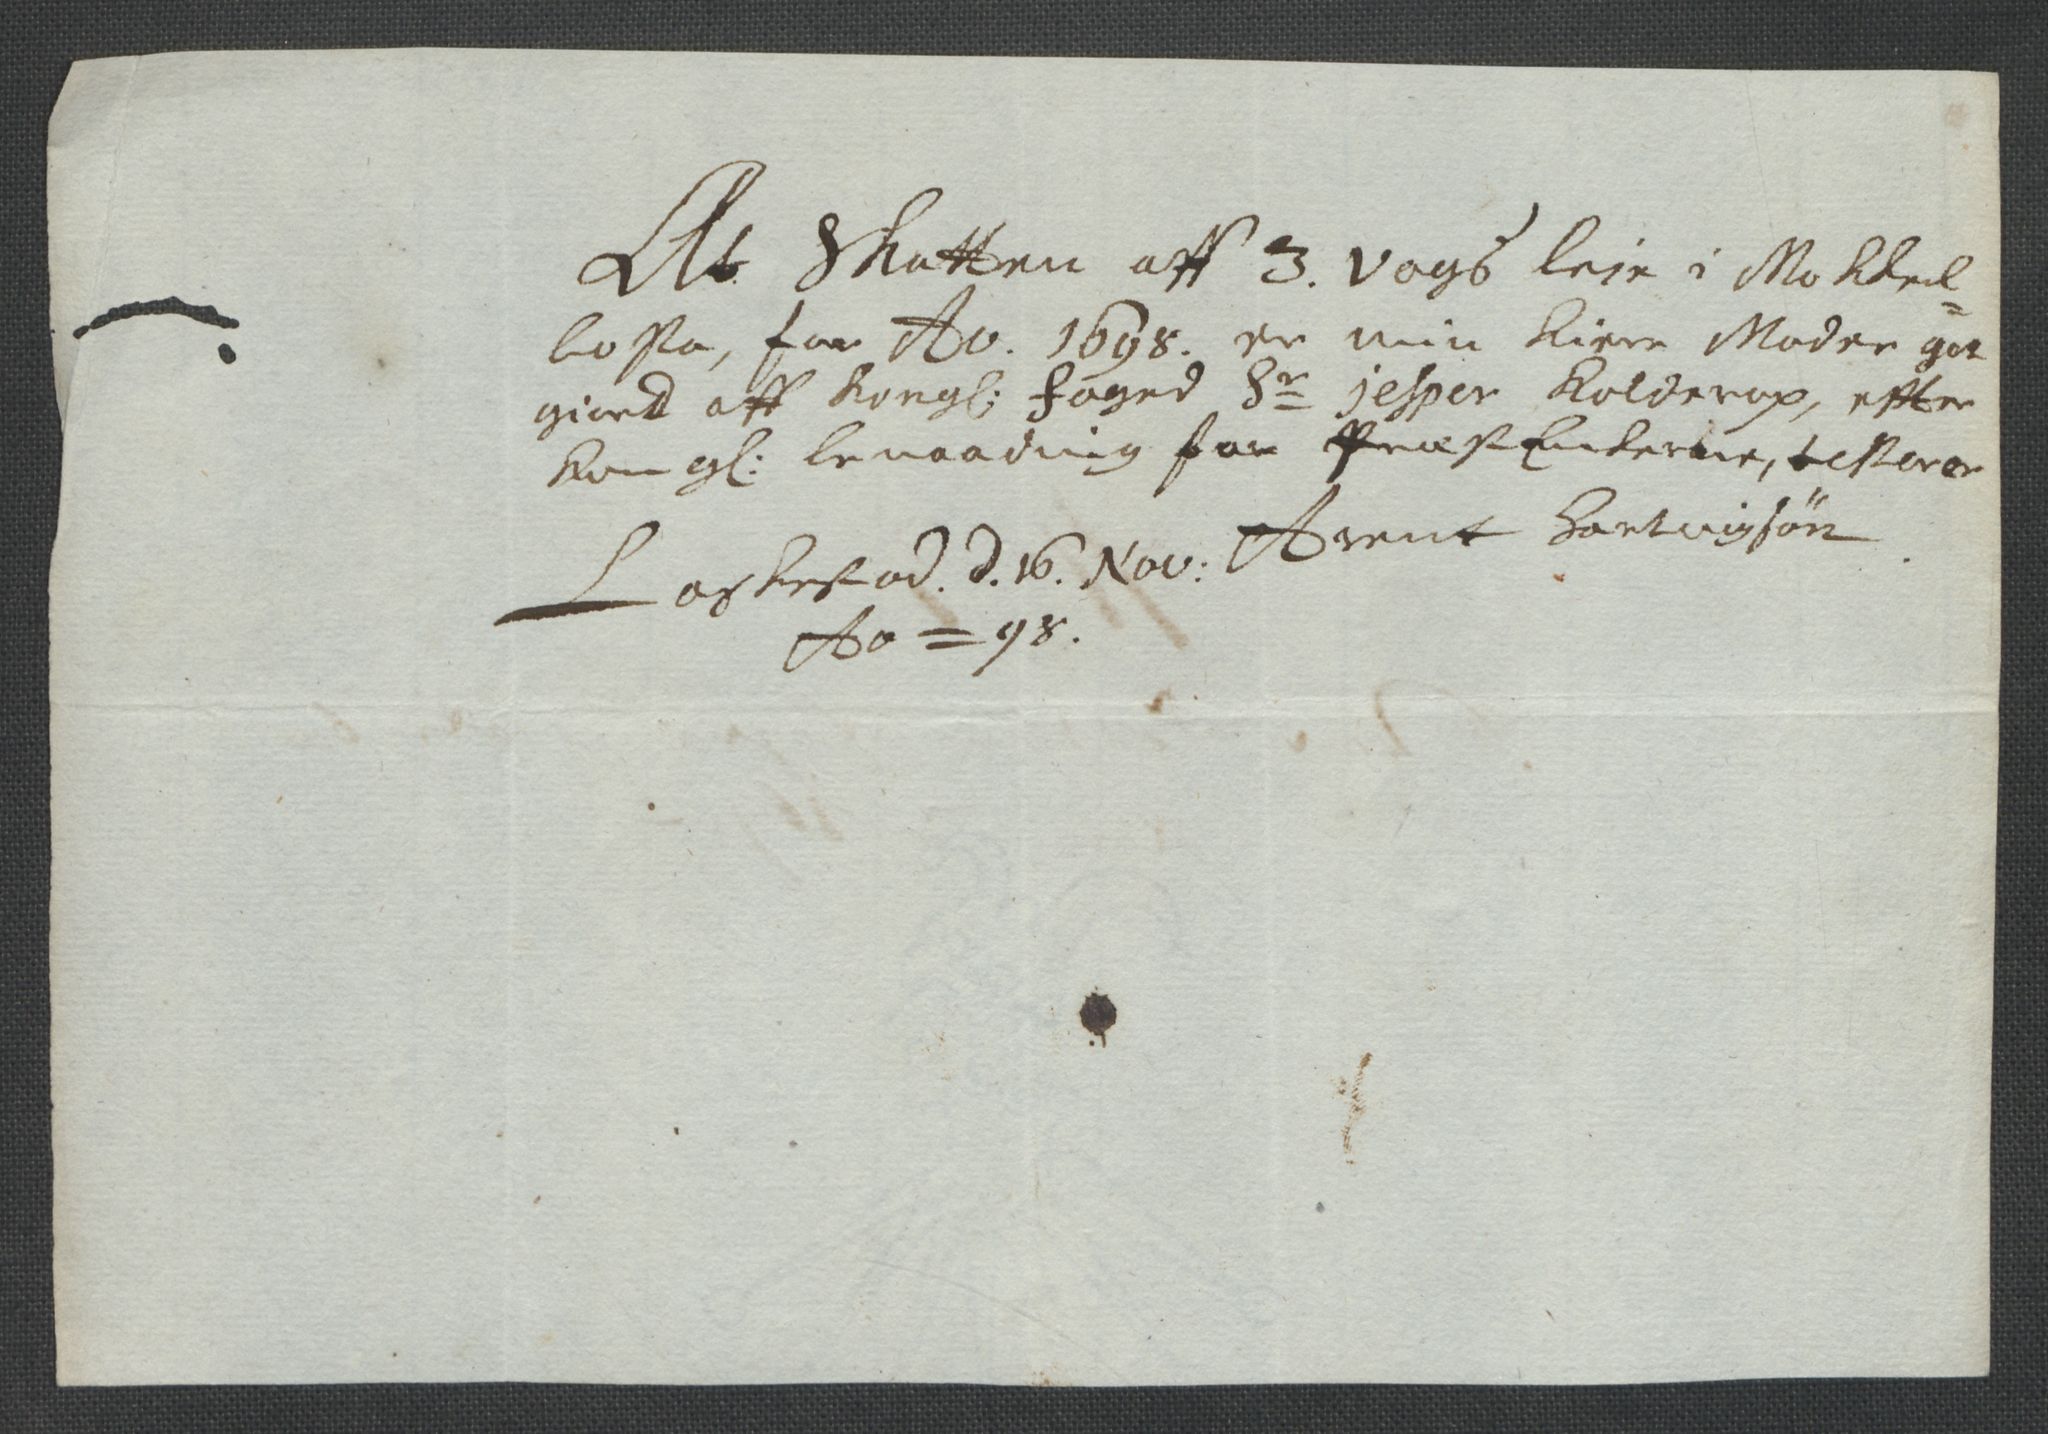 At Skatten aff 3. vogs leje i Mokkel=
losta, for Ao. 1698. er min kiere Moder got
giort aff kongl: foged Sr jesper kolderop, effter
kongl: benaadnig for Præst Enkerne, testerer
Arent Hartvigsön
Laskestad. d. 16. Nov:
Ao = 98.